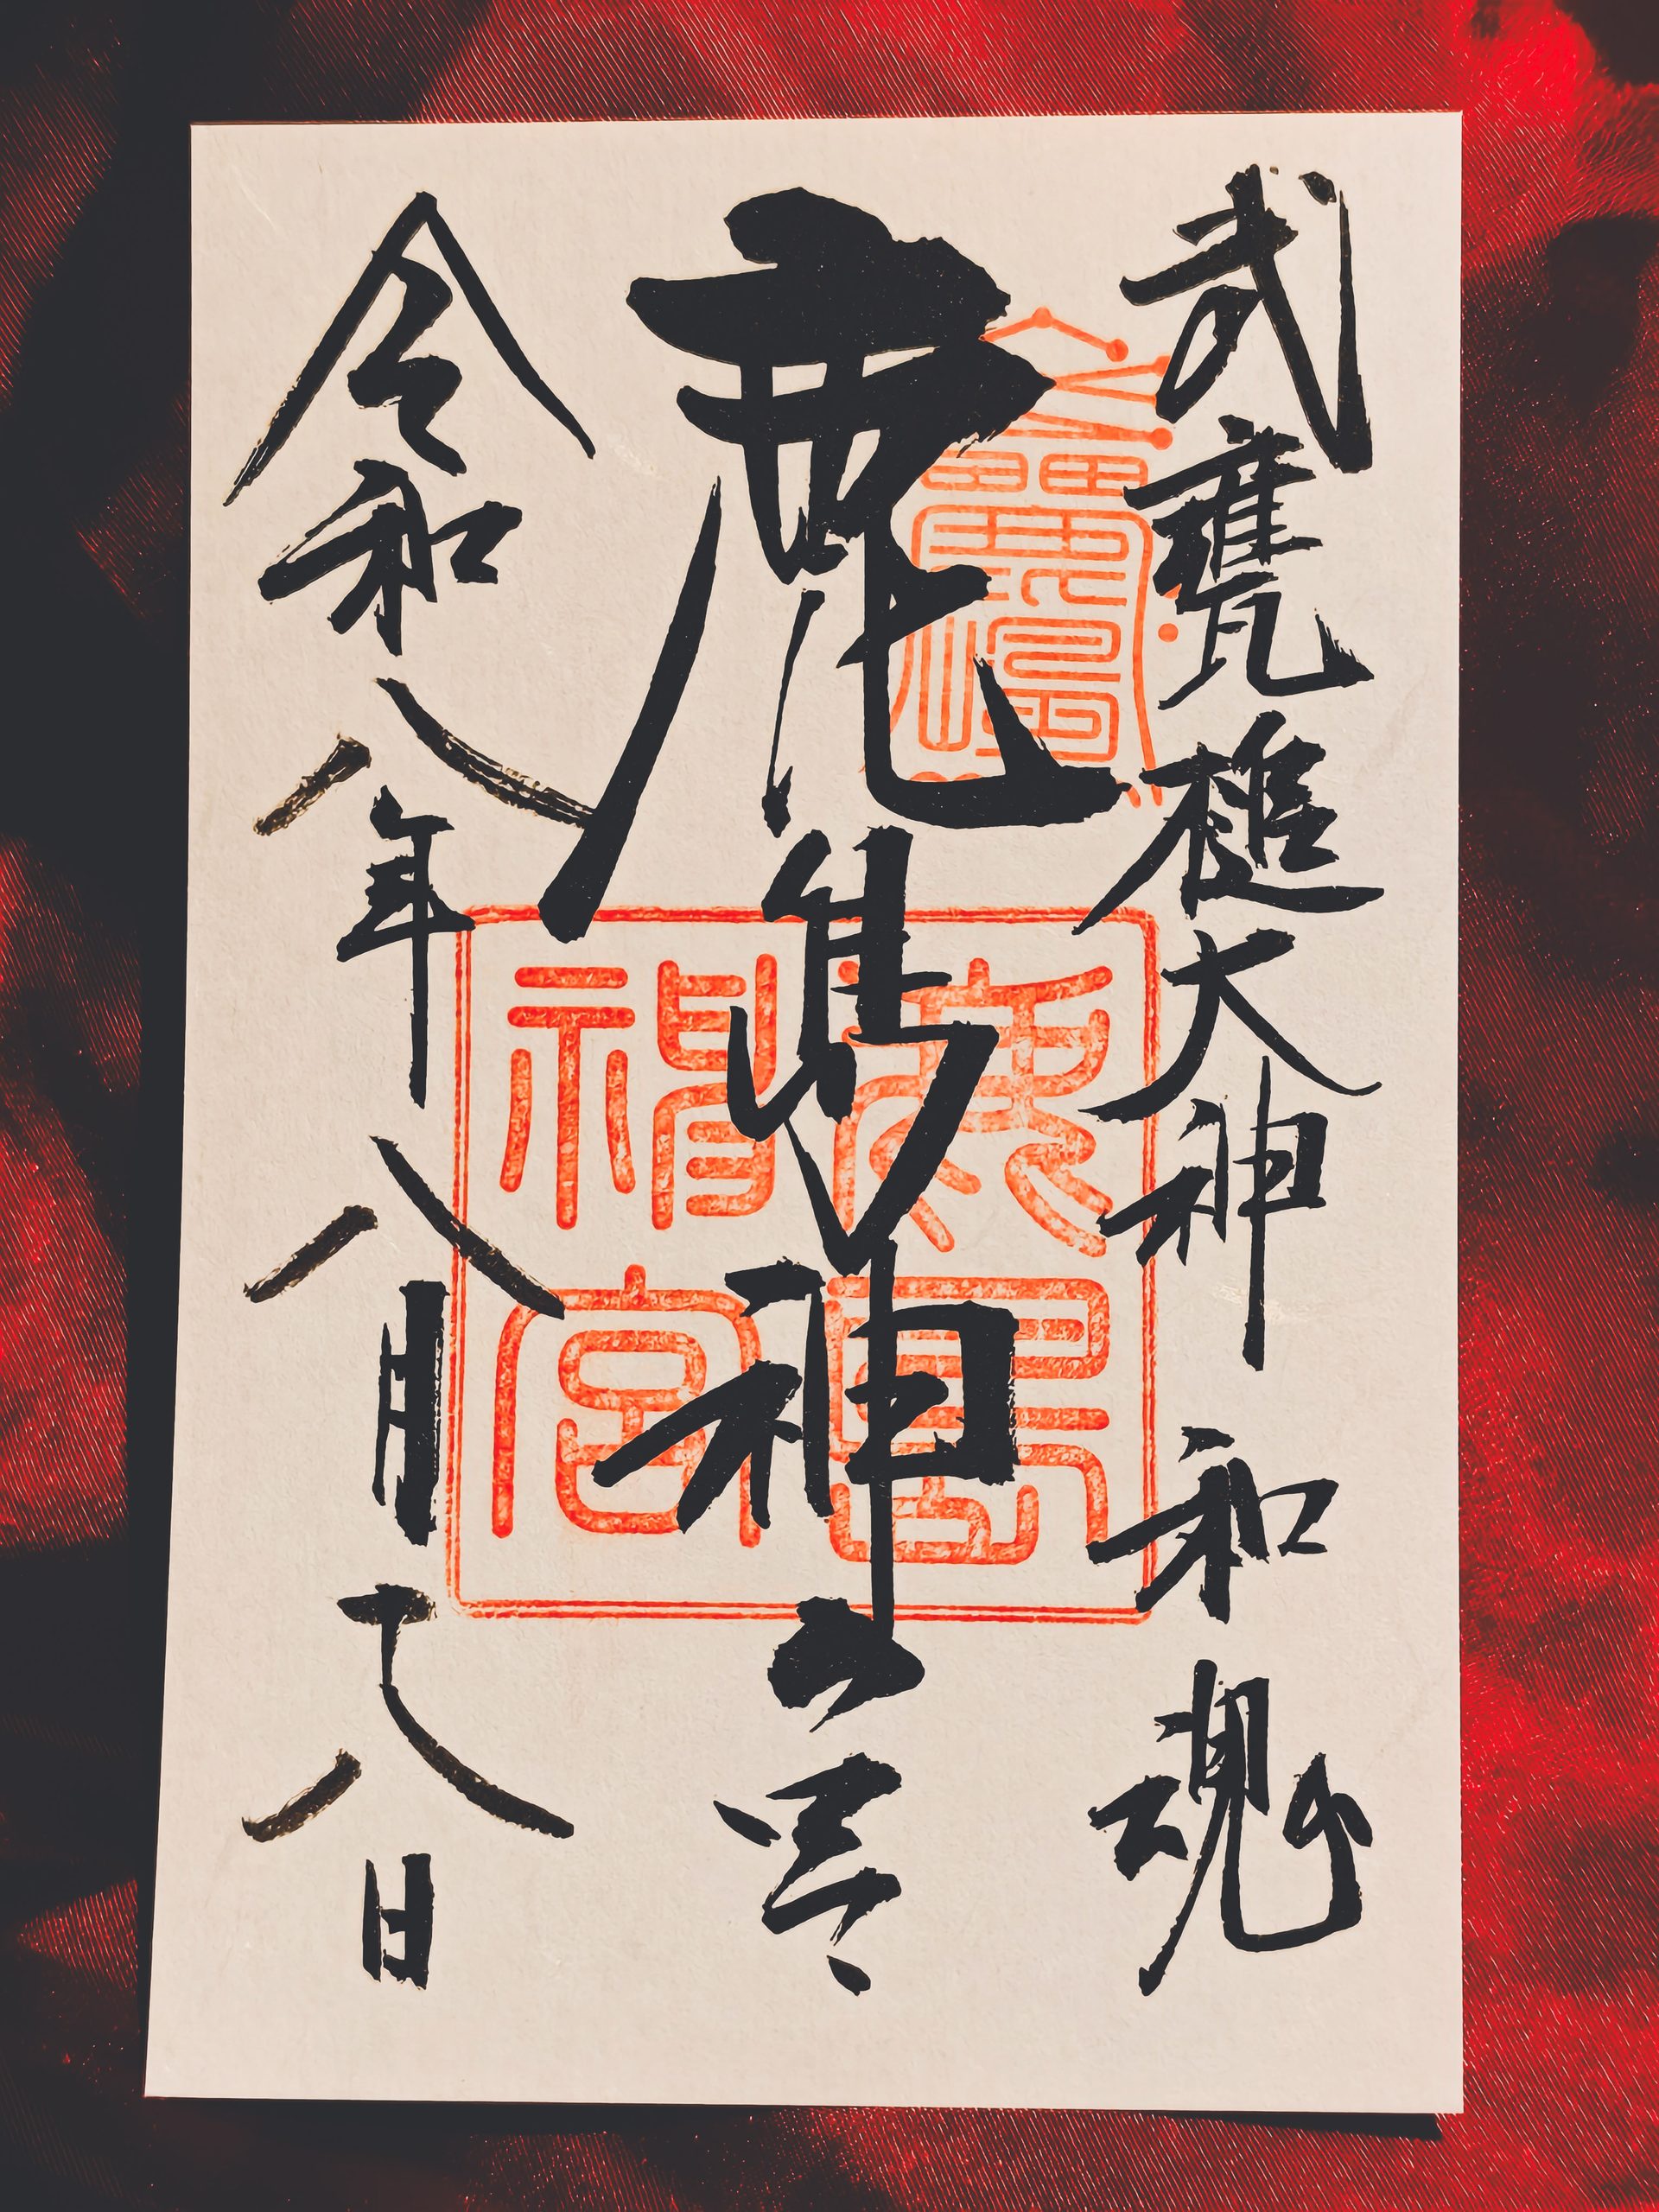 武甕槌大神 和魂
鹿島神宮
令和八年八月十八日
鹿島神宮